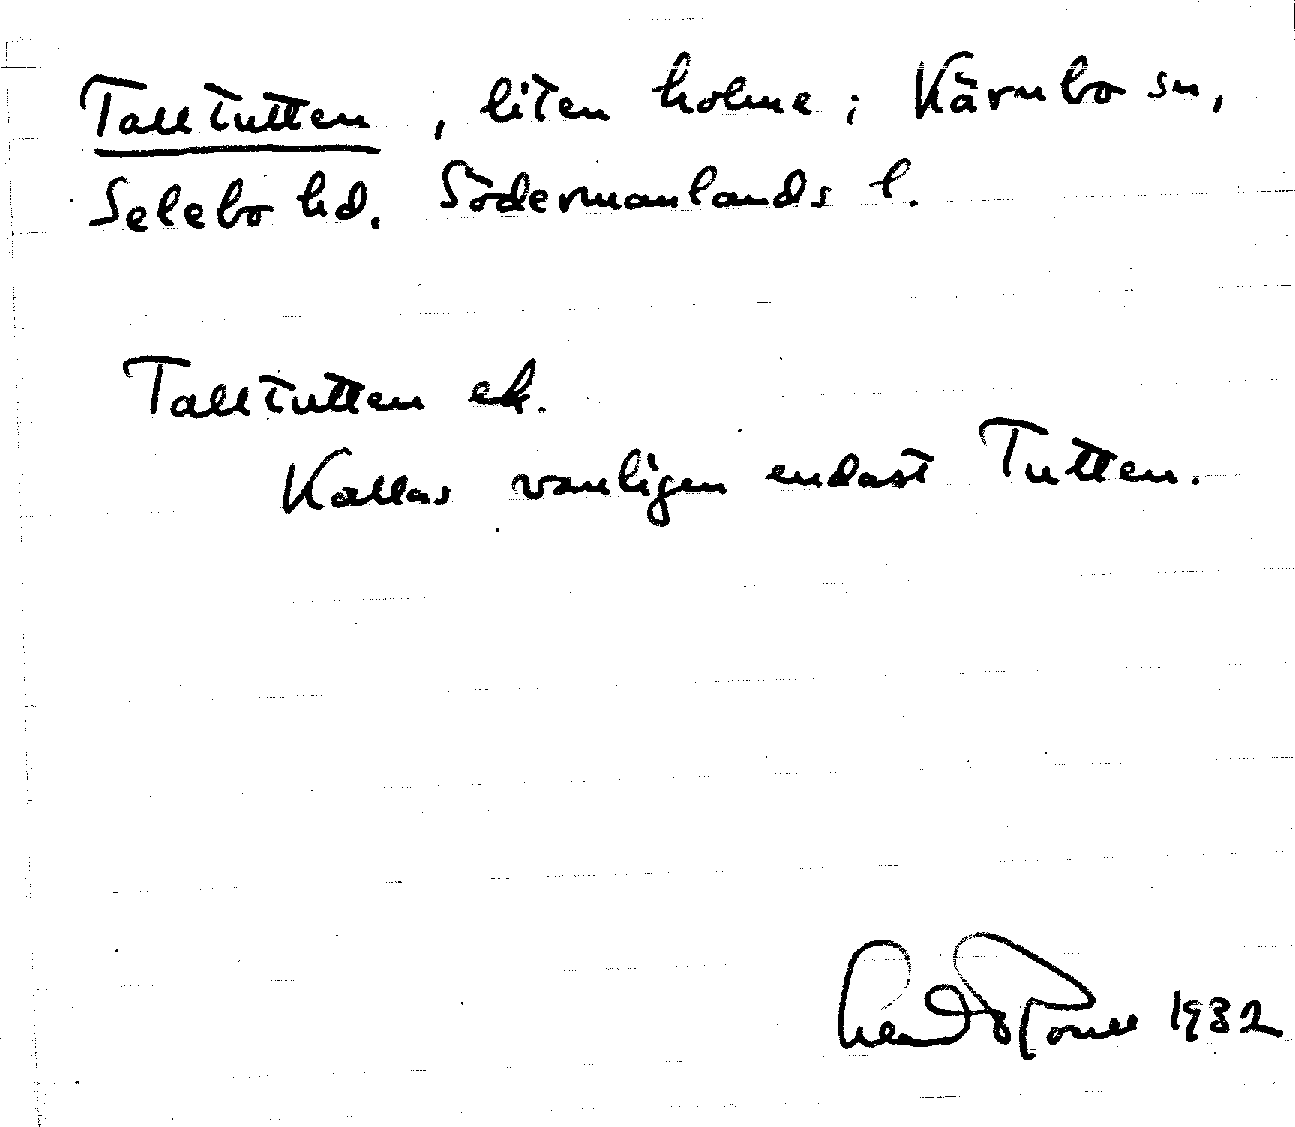 Talltutten, liten holme; Kärnbo sn,
Selebo hd. Södermanlands l.
Talltutten ek.
Kallas vanligen endast Tutten.
1932